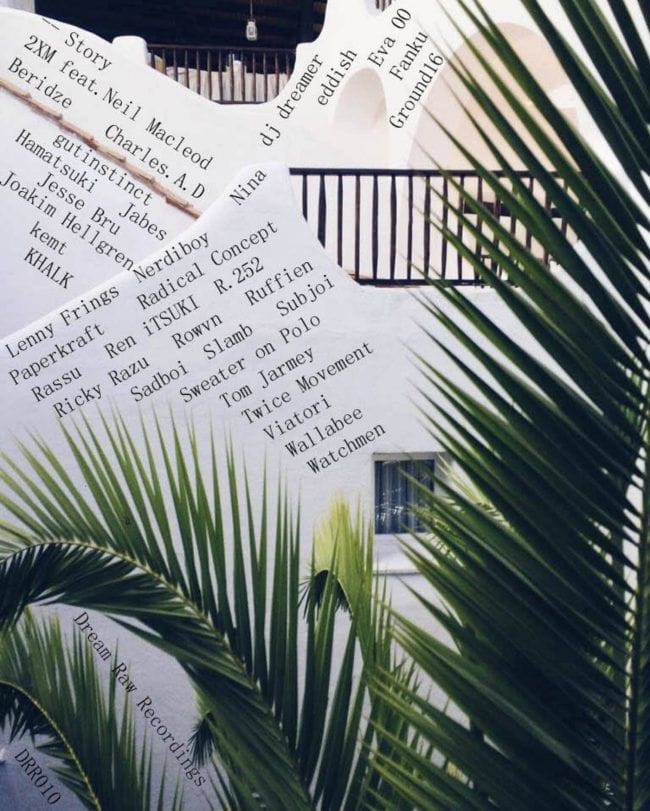 __ Story
2XM feat. Neil Macleod
Beridze
Charles. A.D
gutinstinct
Hamatsuki
Jabes
Jesse Bru
Joakim Hellgren
kemt
KHALK
dj dreamer
eddish
Eva 00
Fanku
Ground16
Nina
Lenny Frings Nerdiboy
Paperkraft Radical Concept
Rassu Ren iTSUKI R.252
Ricky Razu Rowvn Ruffien
Sadboi Slamb Subjoi
Sweater on Polo
Tom Jarmey
Twice Movement
Viatori
Wallabee
Watchmen
Dream Raw Recordings
DRR010